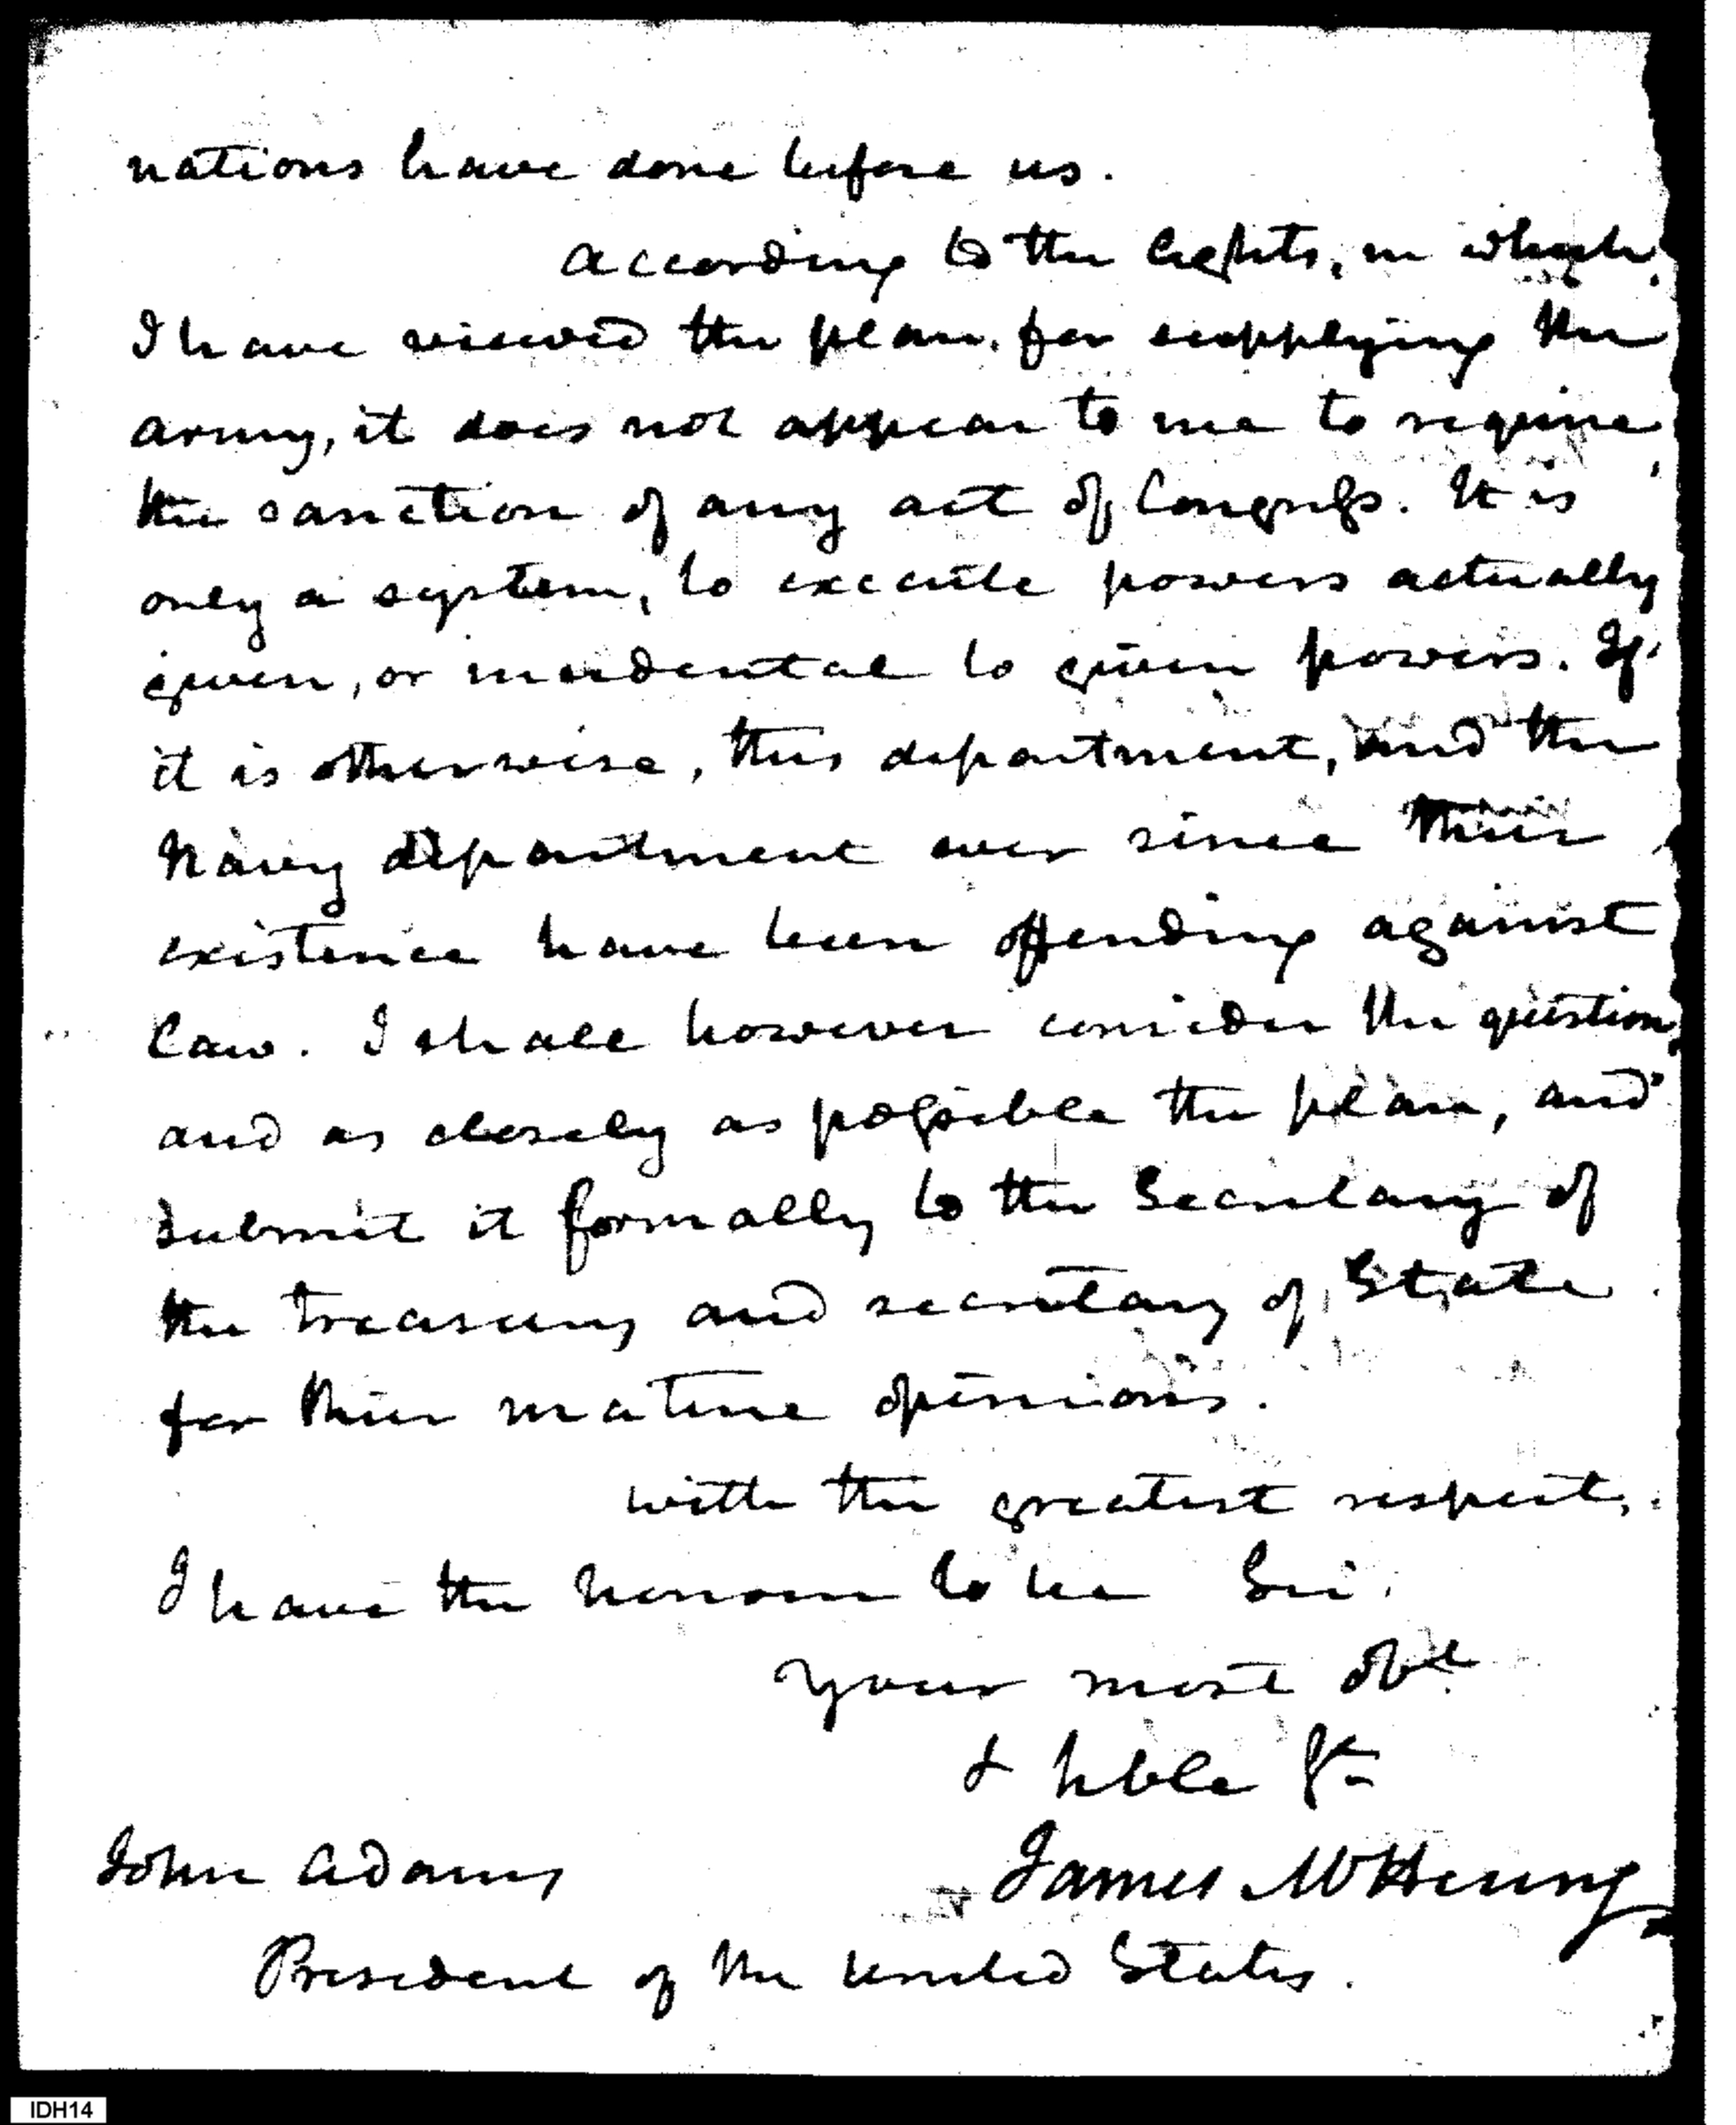 nations have done before us.
According to the lights, in which
I have viewed the plan, for supplying the
army, it does not appear to me to require
the sanction of any act of Congress. It is
only a system, to execute powers actually
given, or incidental to given powers. If
it is otherwise, this department, and the
Navy department ever since their
existence have been offending against
law. I shall however consider the question
and as closely as possible the plan, and
submit it formally to the Secretary of
the treasury and secretary of State
for their mature opinions.
with the greatest respect,
I have the honour to be Sir
Your most obt
& hble St
John Adams
James McHenry
President of the United States.
IDH14